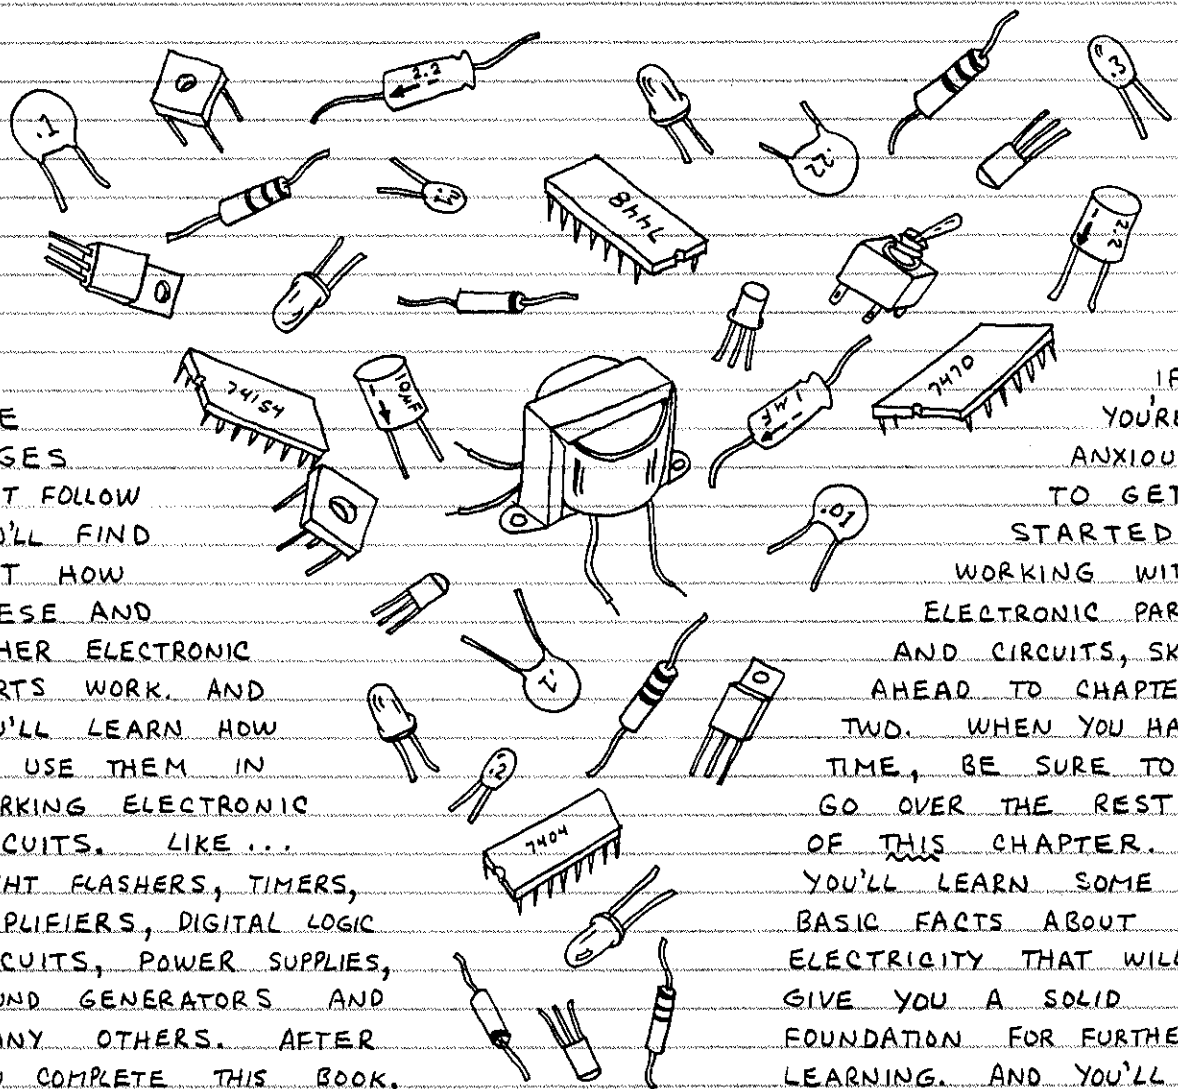 .1
2.2
.3
.22
7448
2.2
74154
10µF
1MF
7470
.01
.1
.2
7404
E
GES
T FOLLOW
U'LL FIND
T HOW
ESE AND
HER ELECTRONIC
RTS WORK. AND
U'LL LEARN HOW
USE THEM IN
RKING ELECTRONIC
CUITS. LIKE...
HT FLASHERS, TIMERS,
PLIFIERS, DIGITAL LOGIC
CUITS, POWER SUPPLIES,
UND GENERATORS AND
NY OTHERS. AFTER
U COMPLETE THIS BOOK.
IF
YOU'RE
ANXIOU
TO GET
STARTED
WORKING WIT
ELECTRONIC PAR
AND CIRCUITS, SK
AHEAD TO CHAPTE
TWO. WHEN YOU HA
TIME, BE SURE TO
GO OVER THE REST
OF THIS CHAPTER.
YOU'LL LEARN SOME
BASIC FACTS ABOUT
ELECTRICITY THAT WILL
GIVE YOU A SOLID
FOUNDATION FOR FURTHE
LEARNING. AND YOU'LL